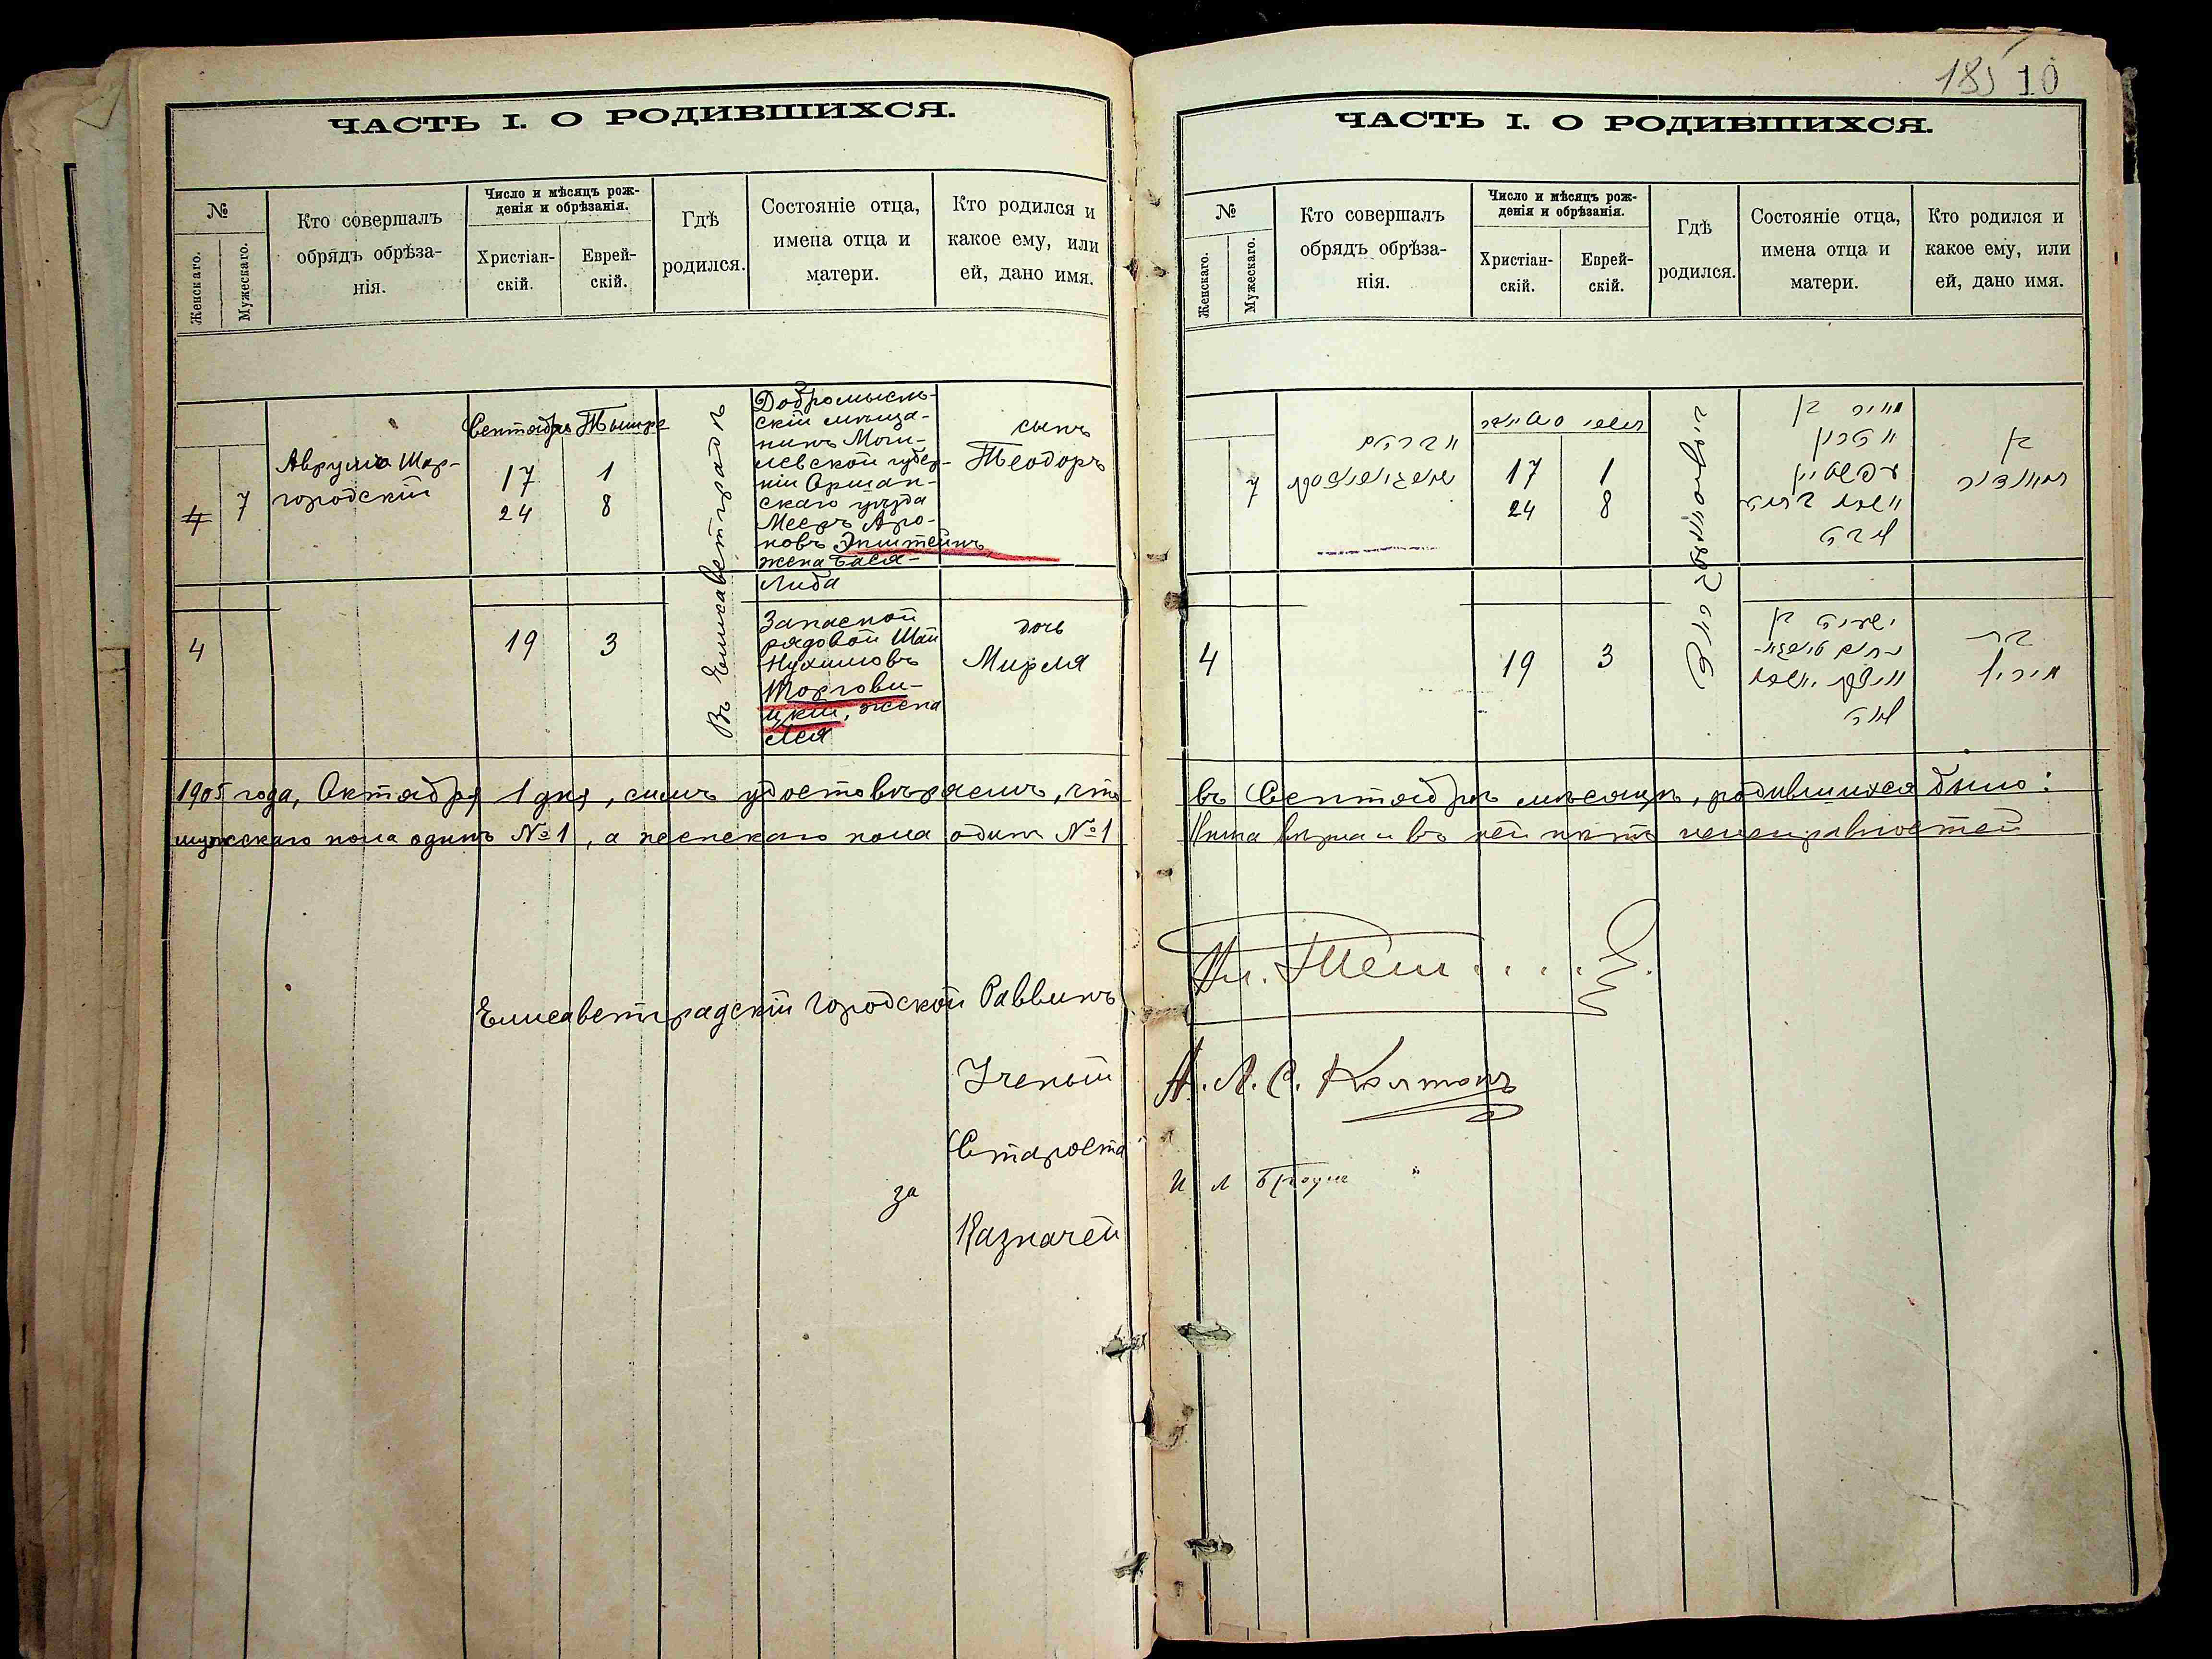 185 10
ЧАСТЬ I. О РОДИВШИХСЯ.
№
Женскаго.
Мужескаго.
Кто совершалъ
обрядъ обрѣза-
нія.
Число и мѣсяцъ рож-
денія и обрѣзанія.
Христіан-
скій.
Еврей-
скій.
Гдѣ
родился.
Состояніе отца,
имена отца и
матери.
Кто родился и
какое ему, или
ей, дано имя.
7
Аврумъ Шар-
городскій
Сентябрь Тышре
17 1
24 8
Въ Елисаветградѣ
Добромысль-
скій мѣща-
нинъ Моги-
левской губер-
ніи Оршан-
скаго уѣзда
Мееръ Аро-
новъ Эпштейнъ
жена Бася-
Либа
сынъ
Теодоръ
4
19 3
Запасной
рядовой Шая
Нухимовъ
Торгови-
цкій, жена
Лея
дочь
Мирля
1905 года, Октября 1 дня, симъ удостовѣряемъ, что
мужскаго пола одинъ №1, а женскаго пола одинъ №1
Елисаветградскій Городской Раввинъ
Ученый
Староста
за
Казначей
ЧАСТЬ I. О РОДИВШИХСЯ.
№
Женскаго.
Мужескаго.
Кто совершалъ
обрядъ обрѣза-
нія.
Число и мѣсяцъ рож-
денія и обрѣзанія.
Христіан-
скій.
Еврей-
скій.
Гдѣ
родился.
Состояніе отца,
имена отца и
матери.
Кто родился и
какое ему, или
ей, дано имя.
7
אברהם
17 1
24 8
מאיר בן
אהרן
עפשטיין
בן
4
19 3
ישעיה בן
לאה
בת
מירל
въ Сентябрѣ мѣсяцѣ, родившихся было:
Книга вѣрна и въ ней нѣтъ неисправностей
Вл. Тем
А. Л. С. Колтонъ
И Л